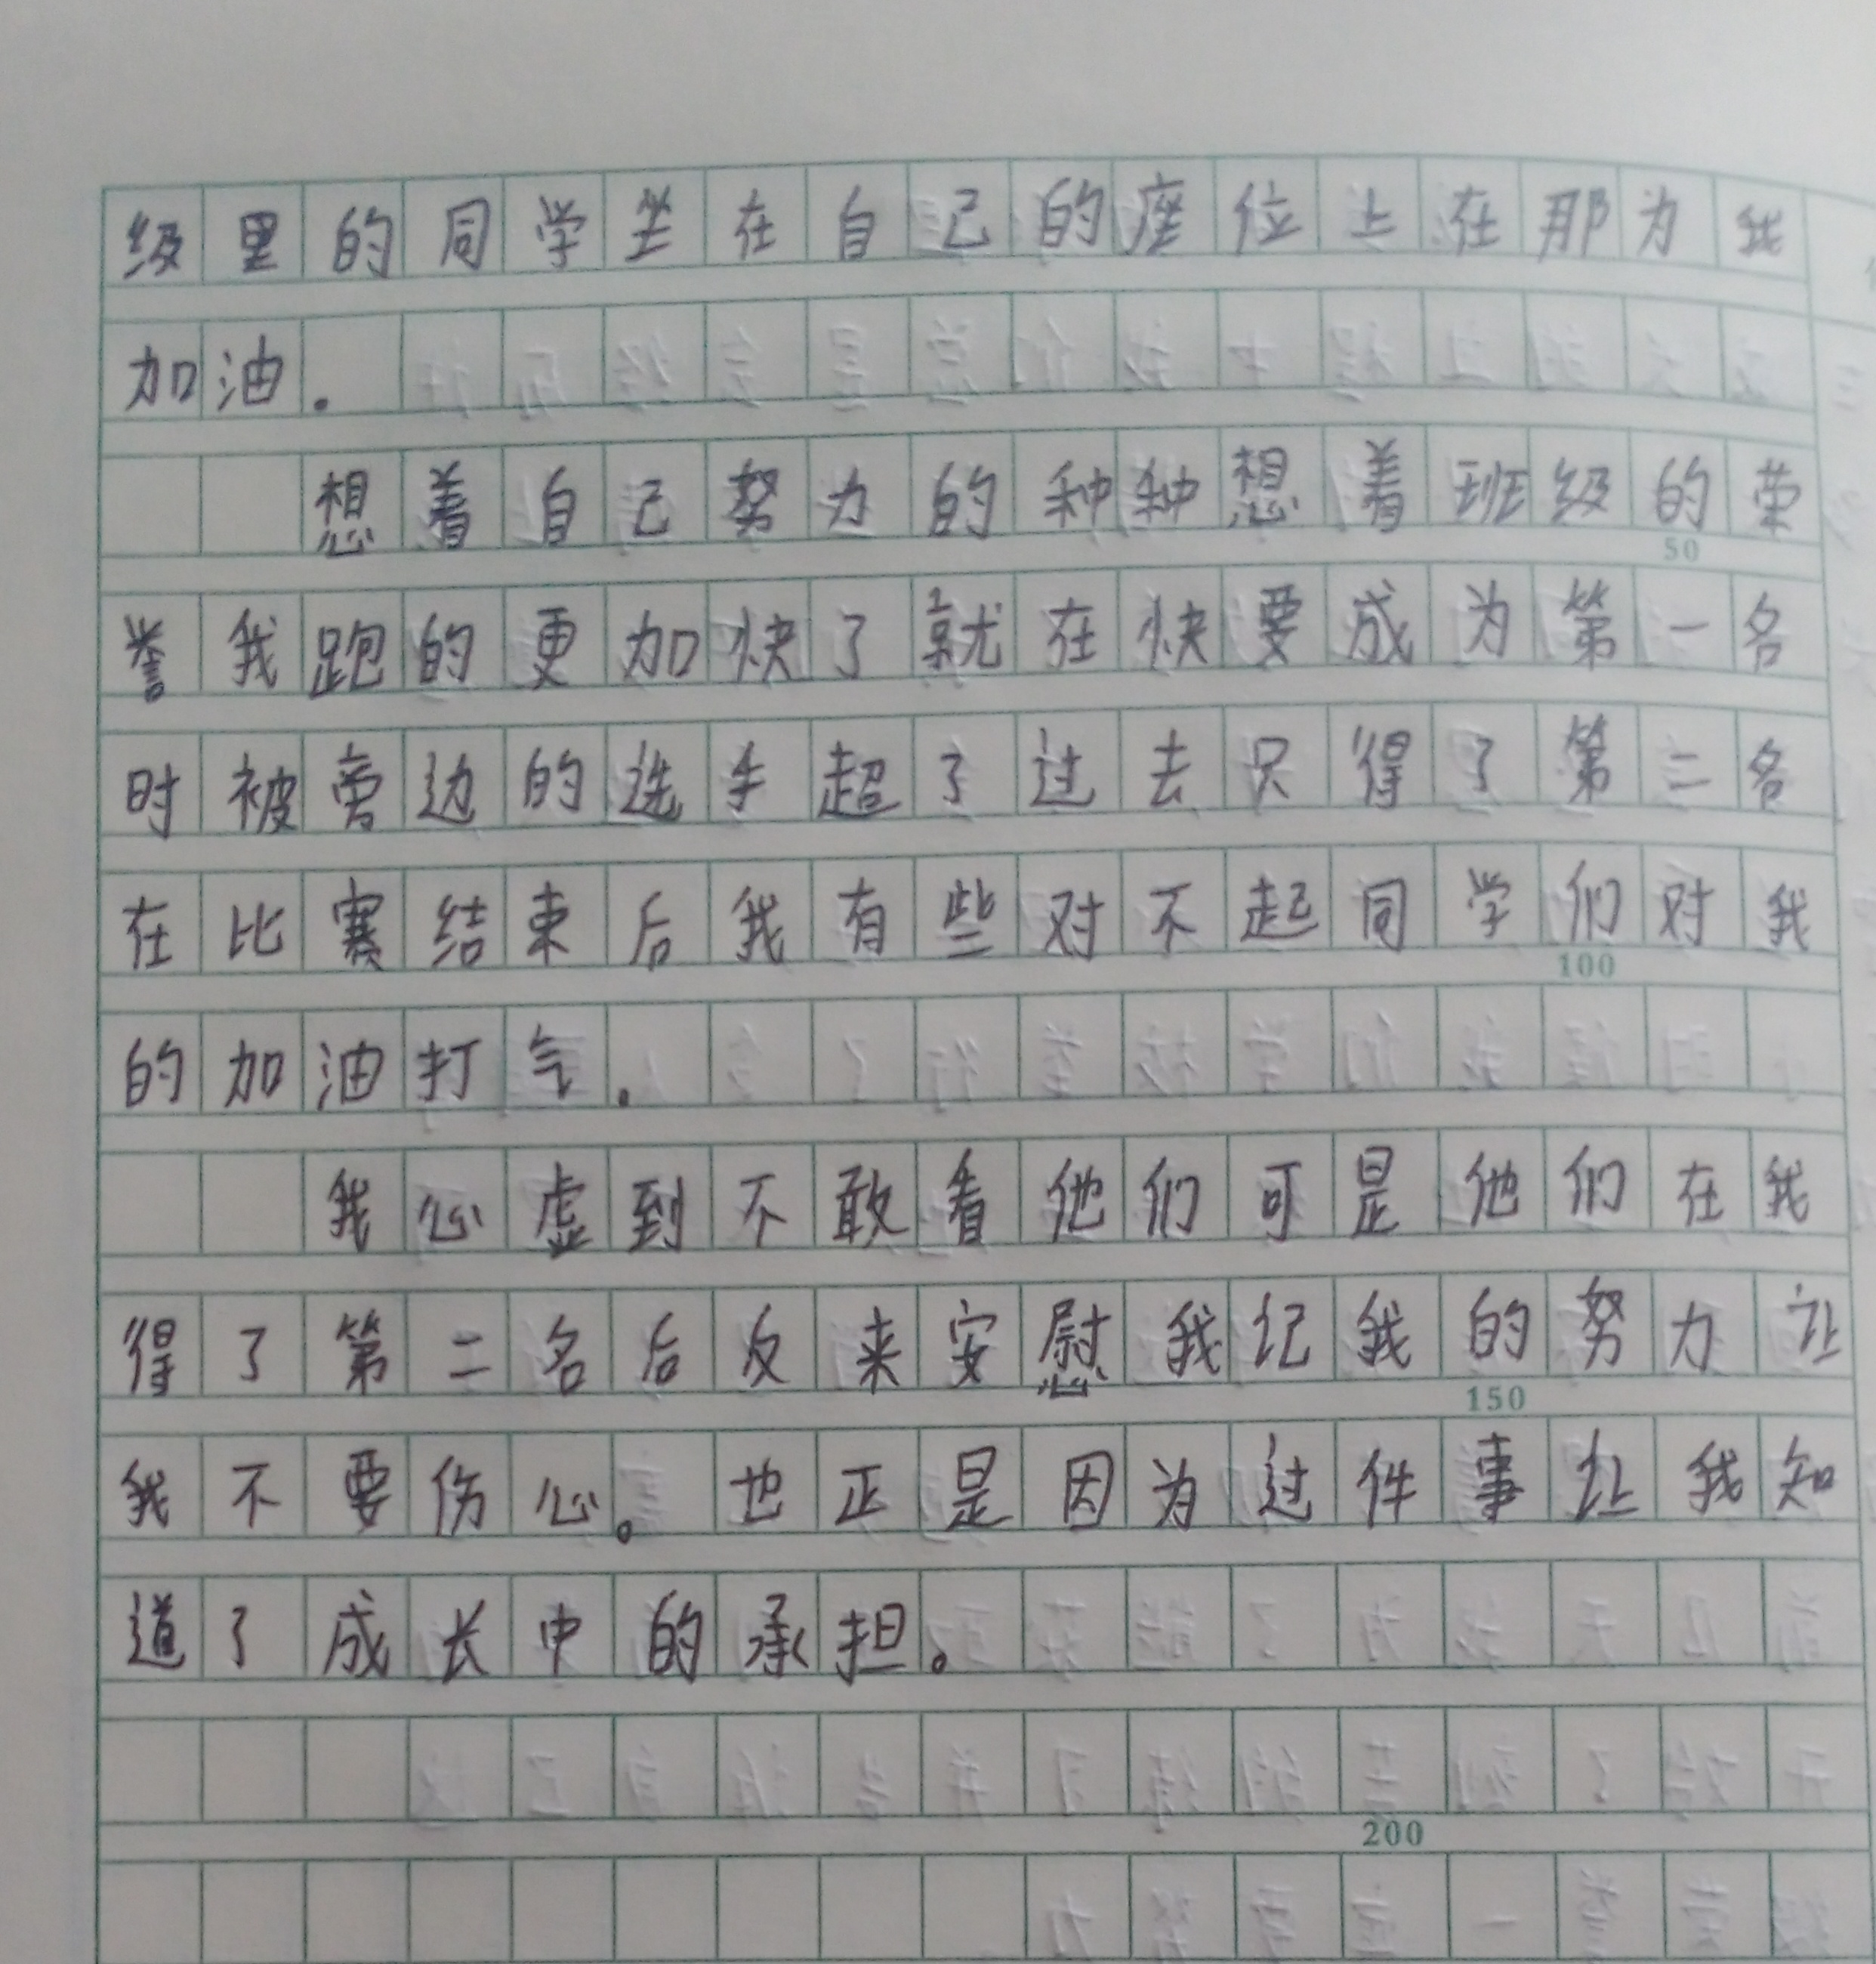 级里的同学坐在自己的座位上在那为我
加油.
想着自己努力的种种想着班级的荣
50
誉我跑的更加快了就在快要成为第一名
时被旁边的选手超了过去只得了第二名
在比赛结束后我有些对不起同学们对我
100
的加油打气.
我心虚到不敢看他们可是他们在我
得了第二名后反来安慰我记我的努力让
150
我不要伤心。也正是因为过件事让我知
道了成长中的承担。
200